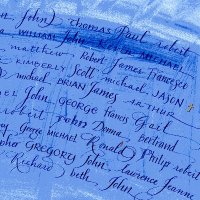 John) THOMAS Paul robert
WILLIAM John RONALD MICHAEL
matthew Robert James Francesco
KIMBERLY Scott michael JASON
michael BRIAN James ARTHUR
John GEORGE Francis Gael
robert John Donna bertrand
George MICHAEL Ronald Philip robert
GREGORY John lawrence Jeanne
Richard beth John